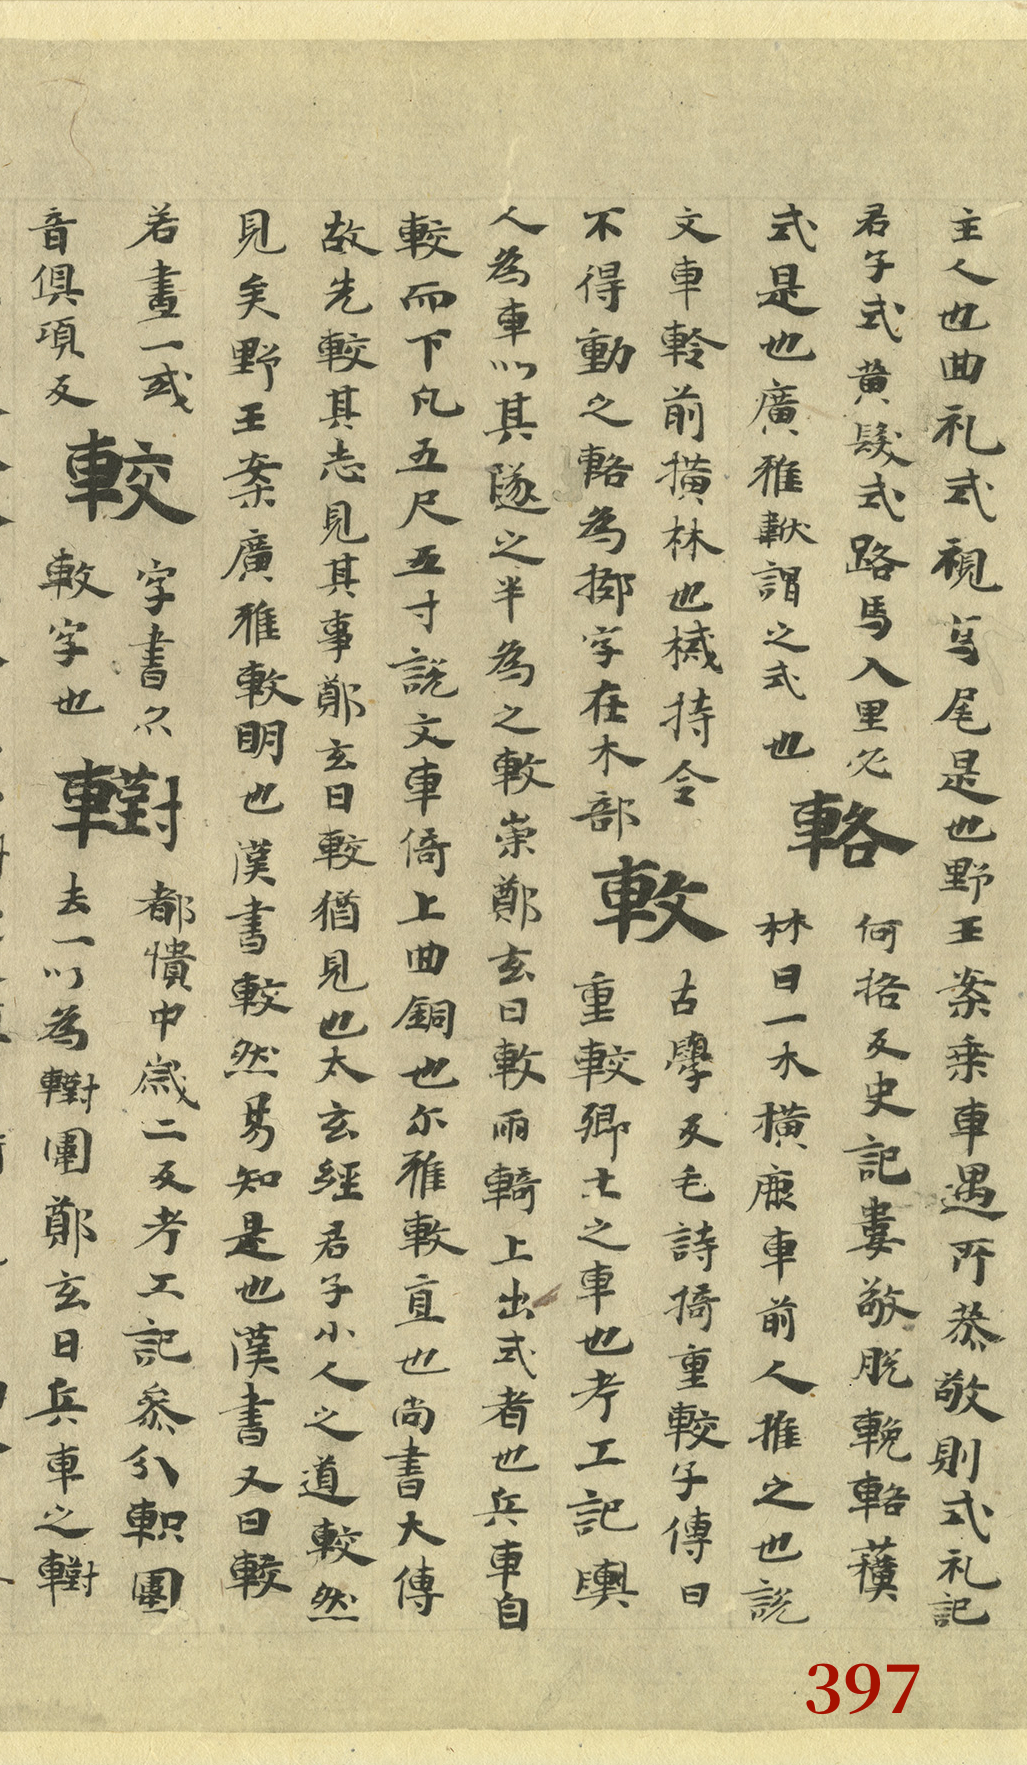 主人也曲礼式視馬尾是也野王案乗車遇所恭敬則式礼記
君子式黄髮式路馬入里必
式是也廣雅軾謂之式也
輅
何挌反史記婁敬脱輓輅蘓
林曰一木横鹿車前人推之也説
文車軨前横林也檅持令
不得動之輅為㨋字在木部
䡈
古學反毛詩掎重較子傳曰
重較卿士之車也考工記輿
人為車以其隧之半為之䡈崇鄭玄曰䡈兩輢上出式者也兵車自
較而下凡五尺五寸説文車倚上曲銅也尓雅䡈直也尚書大傳
故先較其志見其事鄭玄曰較猶見也太玄經君子小人之道較然
見矣野王案廣雅䡈明也漢書較然易知是也漢書又曰較
若畫一或
音倶項反
較
字書亦
䡈字也
轛
都憒中嵗二反考工記叅分軹圍
去一以為轛圍鄭玄曰兵車之轛
397